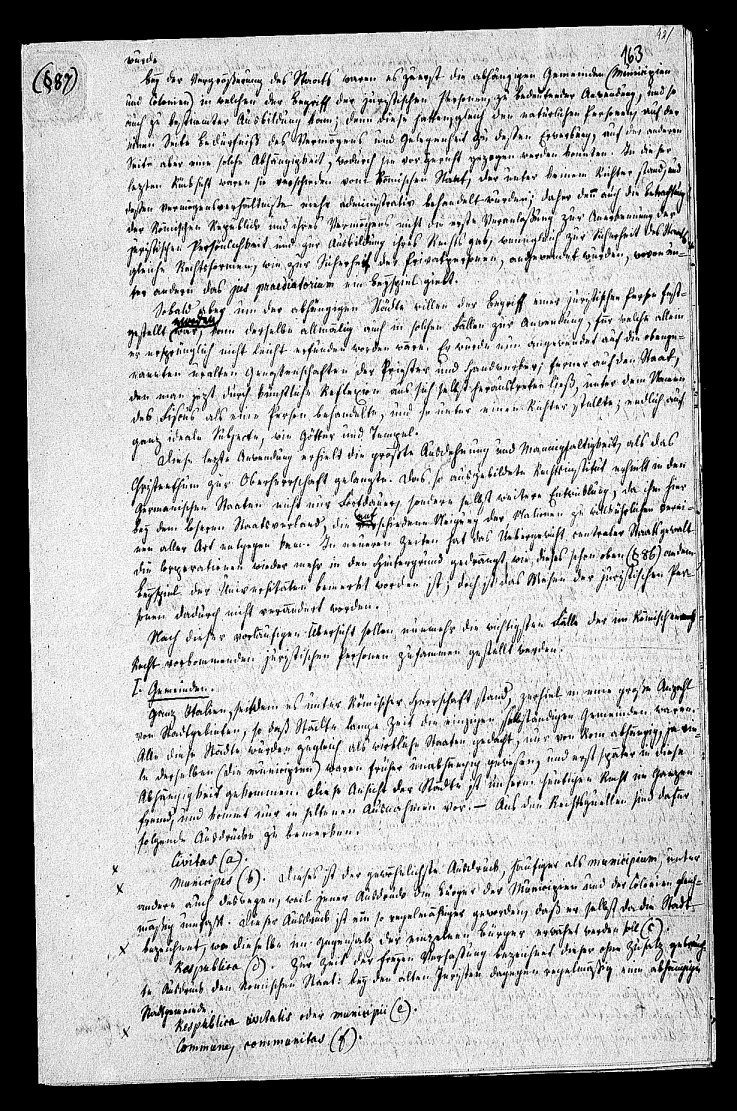 421
163
(§87)
wurde
Bey der Vergrößerung des Staats waren es zuerst die abhängigen Gemeinden (Municipien
und Colonien) in welchen der Begriff der juristischen Personen zu bedeutender Anwendung, und so
auch zu bestimmter Ausbildung kam; denn diese hatten gleich den natürlichen Personen, auf der
einen Seite Bedürfniß des Vermögens und Gelegenheit zu dessen Erwerbung, auf der anderen
Seite aber eine solche Abhängigkeit, wodurch sie vor Gericht gezogen werden konnten. In dieser
letzten Rücksicht waren sie verschieden vom Römischen Staat, der unter keinem Richter stand, und
dessen Vermögensverhältnisse mehr administrativ behandelt wurden; daher denn auch die Betrachtung
der Römischen Republik und ihres Vermögens nicht die erste Veranlassung zur Anerkennung der
juristischen Persönlichkeit und zur Ausbildung ihres Rechts gab, wenngleich zur Sicherheit des Staats
gleiche Rechtsformen, wie zur Sicherheit der Privatpersonen, angewendet wurden, wovon un-
ter andern das jus praediatorium ein Beyspiel giebt.
Sobald aber um der abhängigen Städte willen der Begriff einer juristischen Person fest-
gestellt worden war, kam derselbe allmälig auch in solchen Fällen zur Anwendung, für welche allein
er ursprünglich nicht leicht erfunden worden wäre. Er wurde nun angewendet auf die obenge-
nannten uralten Genossenschaften der Priester und Handwerker; ferner auf den Staat,
den man jetzt durch künstliche Reflexion aus sich selbst heraustreten ließ, unter dem Namen
des Fiscus als eine Person behandelte, und so unter einen Richter stellte; endlich auf
ganz ideale Subjecte, wie Götter und Tempel.
Diese letzte Anwendung erhielt die größte Ausdehnung und Mannigfaltigkeit, als das
Christenthum zur Oberherrschaft gelangte. Das so ausgebildete Rechtsinstitut erhielt in den
Germanischen Staaten nicht nur Fortdauer, sondern selbst weitere Entwicklung, da ihm hier
bey dem loseren Staatsverband, die Neigung der Nationen zu willkührlichen Verei-
nen aller Art entgegen kam. In neueren Zeiten hat das Uebergewicht centraler Staatsgewalt
die Corporationen wieder mehr in den Hintergrund gedrängt, wie dieses schon oben (§ 86) an dem
Beyspiel der Universitäten bemerkt worden ist; doch ist das Wesen der juristischen Per-
sonen dadurch nicht verändert worden.
Nach dieser vorläufigen Übersicht sollen nunmehr die wichtigsten Fälle der im Römischen
Recht vorkommenden juristischen Personen zusammen gestellt werden.
I. Gemeinden.
Ganz Italien, seitdem es unter Römischer Herrschaft stand, zerfiel in eine große Anzahl
von Stadtgebieten, so daß Städte lange Zeit die einzigen selbstständigen Gemeinden waren.
Alle diese Städte wurden zugleich als wirkliche Staaten gedacht, nur von Rom abhängig, ja vie-
le derselben (die Municipien) waren früher unabhängig gewesen, und erst später in diese
Abhängigkeit gekommen. Diese Ansicht der Städte ist unserm heutigen Recht im Ganzen
fremd, und kommt nur in seltenen Ausnahmen vor. — Aus den Rechtsquellen sind dafür
folgende Ausdrücke zu bemerken.
x Civitas (a).
x Municipes (b). Dieses ist der gewöhnlichste Ausdruck, häufiger als municipium, unter
andern auch deswegen, weil jener Ausdruck die Bürger der Municipien und der Colonien gleich-
mäßig umfaßt. Dieser Ausdruck ist ein so regelmäßiger geworden, daß er selbst da die Stadt
bezeichnet, wo dieselbe im Gegensatz der einzelnen Bürger erwähnt werden soll (c).
x Respublica (d). Zur Zeit der freyen Verfassung bezeichnet dieser ohne Zusatz gebrauch-
te Ausdruck den Römischen Staat: bey den alten Juristen dagegen regelmäßig eine abhängige
Stadtgemeinde.
Respublica civitatis oder municipii (e).
x Commune, communitas (f).